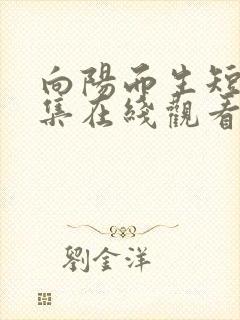 向陽而生短
集在綫觀看
劉金洋